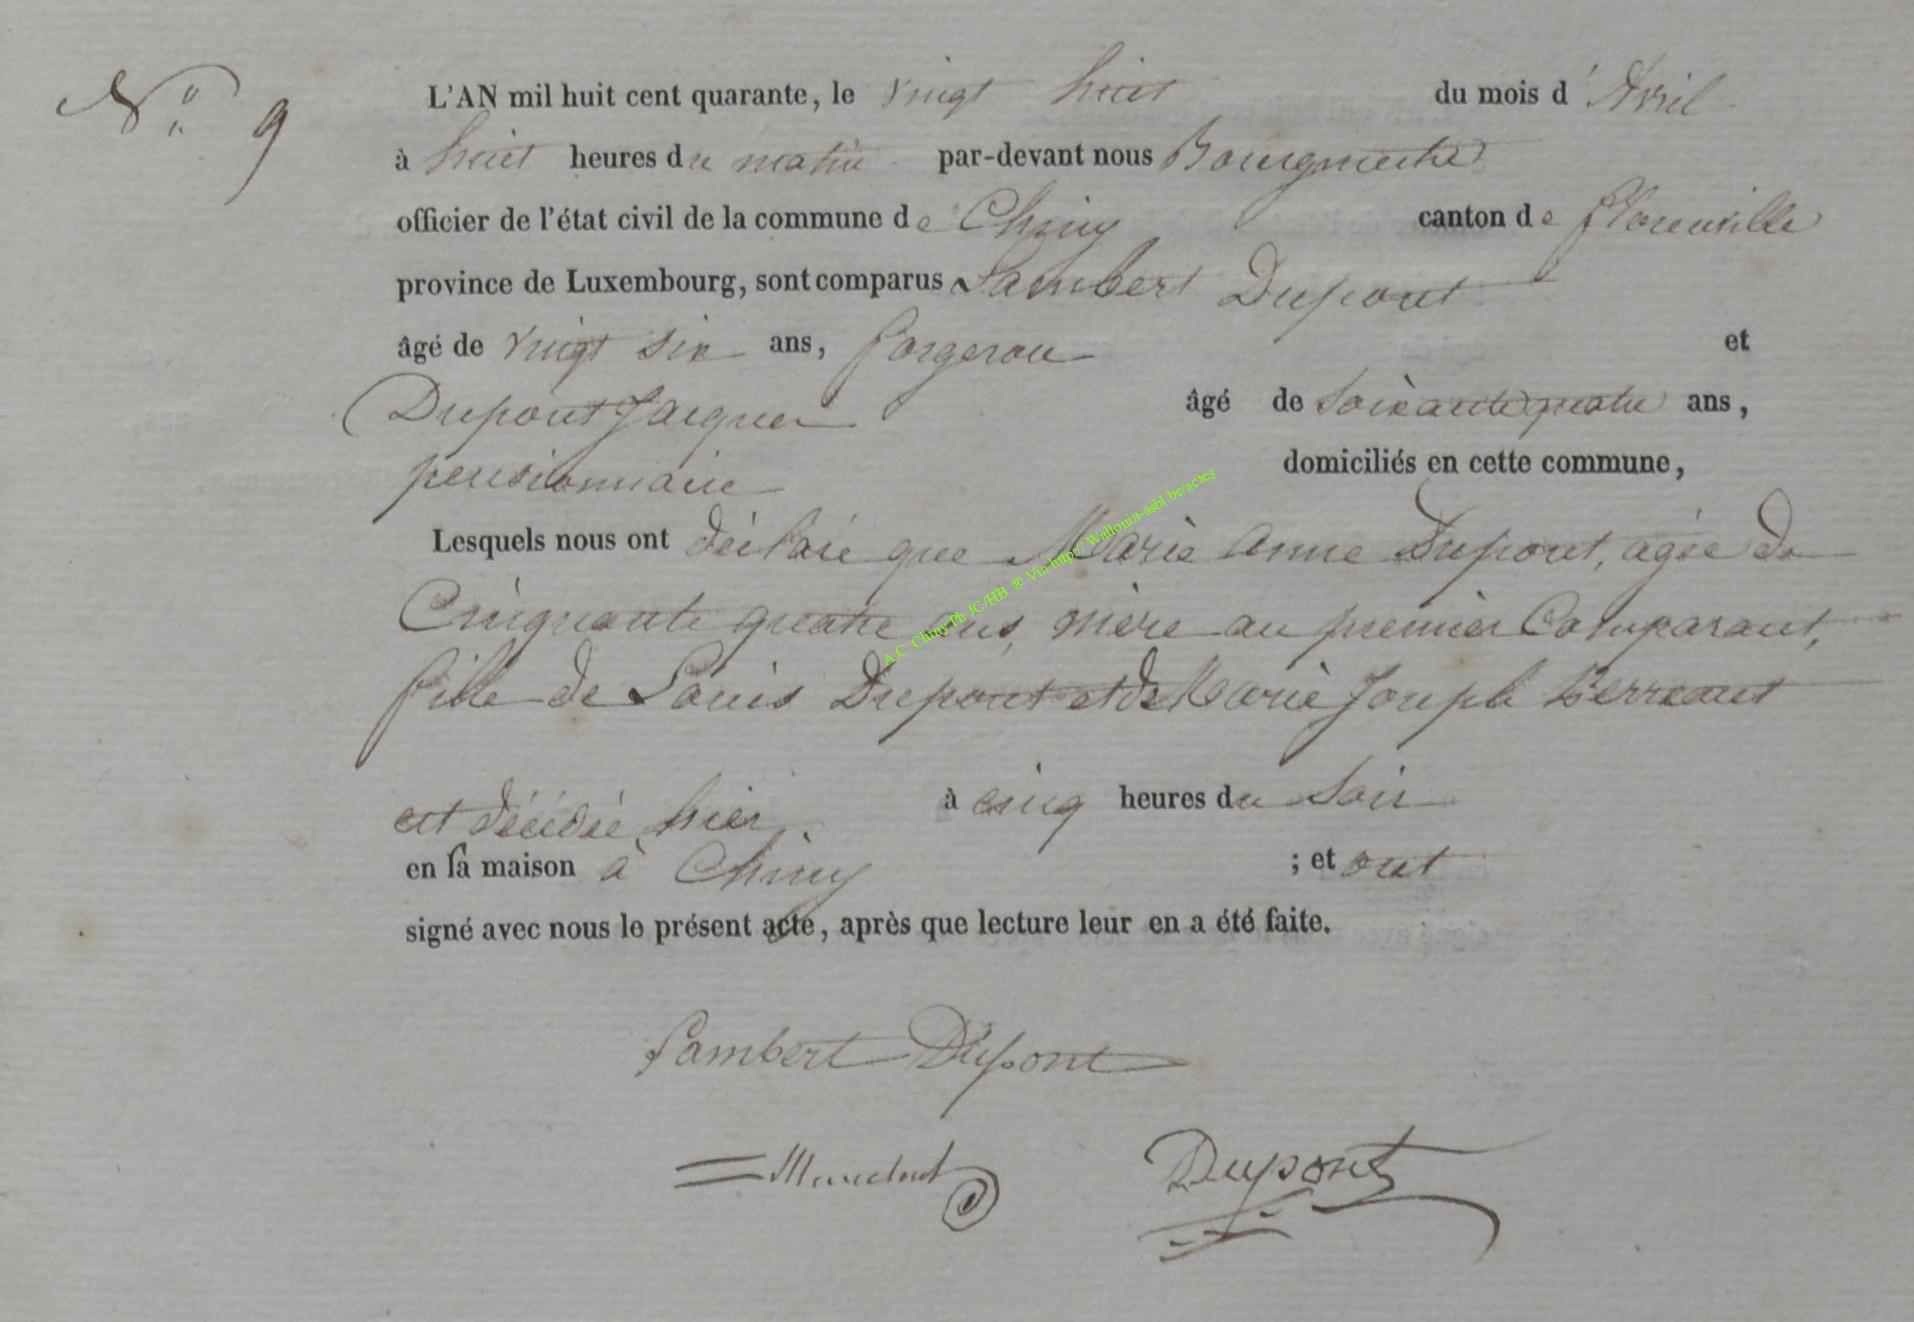 N° 9
L'AN mil huit cent quarante, le vingt huit du mois d'Avril
à huit heures du matin par-devant nous Bourgmestre
officier de l'état civil de la commune de Chiny canton de florenville
province de Luxembourg, sont comparus Lambert Dupont
âgé de vingt six ans, forgeron et
Dupont Jacques âgé de soixante quatre ans,
pensionnaire domiciliés en cette commune,
Lesquels nous ont déclaré que Marie Anne Dupont, agée de
Cinquante quatre ans, mère au premier Comparant,
fille de Louis Dupont et de Marie Joseph
est décédée hier à cinq heures du Soir
en sa maison à Chiny ; et ont
signé avec nous le présent acte, après que lecture leur en a été faite.
Lambert Dupont
Dupont
A.C. Chiny Ph JC/HB ® Via http:// Wallonia-asbl be/actes